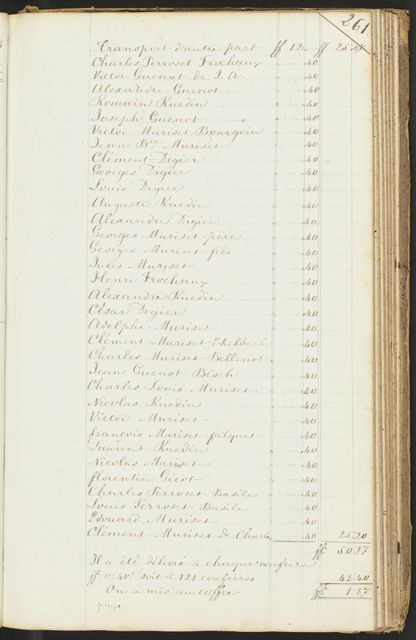 261
Transport d'autre part ff 12 " ff 25.07
Charles Perroset Frochaux " 40
Victor Guenot de J. A. " 40
Alexandre Guenot " 40
Romain Ruedin " 40
Joseph Guenot " 40
Victor Muriset Bourgoin " 40
Jean Bte Muriset " 40
Clément Digier " 40
Georges Digier " 40
Louis Digier " 40
Auguste Ruedin " 40
Alexandre Digier " 40
Georges Muriset père " 40
Georges Muriset fils " 40
Jules Muriset " 40
Henri Frochaux " 40
Alexandre Ruedin " 40
César Digier " 40
Adolphe Muriset " 40
Clément Muriset " 40
Charles Muriset Bellenot " 40
Jean Guenot Blech " 40
Charles Louis Muriset " 40
Nicolas Ruedin " 40
Victor Muriset " 40
françois Muriset " 40
Laurent Ruedin " 40
Nicolas Muriset " 40
florentin Gicot " 40
Charles Perroset Basile " 40
Louis Perroset Basile " 40
Edouard Muriset " 40
Clément Muriset de Charls. 40 25.20
ff 50.27
Il a été délivré à chaque confrère
ff 0:40 soit à 121 confrères 48.40
On a mis en coffre ff 1.87